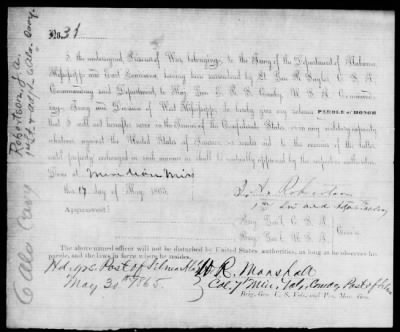 No. 31
I the undersigned Prisoner of War, belonging to the Army of the Department of Alabama,
Mississippi and East Louisiana, having been surrendered by Lt. Gen. R. Taylor, C. S. A.
Commanding said Department to Maj. Gen. E. R. S. Canby, U. S. A. Command-
ing Army and Division of West Mississippi, do hereby give my solemn PAROLE of HONOR
that I will not hereafter serve in the Armies of the Confederate States, or in any military capacity
whatever against the United States of America, or render aid to the enemies of the latter,
until properly exchanged in such manner as shall be mutually approved by the respective authorities.
Done at Meridian Miss
this 14 day of May 1865.
J. A. Robertson
1st Lieut and Adjt
Approved:
Brig. Genl. C. S. A.
Brig. Genl. U. S. A.
The above named officer will not be disturbed by United States authorities, as long as he observes his
parole, and the laws in force where he resides.
Hd. qrs. Post of Selma Ala
May 30th 1865.
W. R. Marshall
Col. 7th Min. Vols. Comdg. Post of Selma
Brig. Gen. U. S. Vols. and
Robertson, J. A.
1st Lt & Adjt 6 Ala. Cavy.
6 Ala Cavy